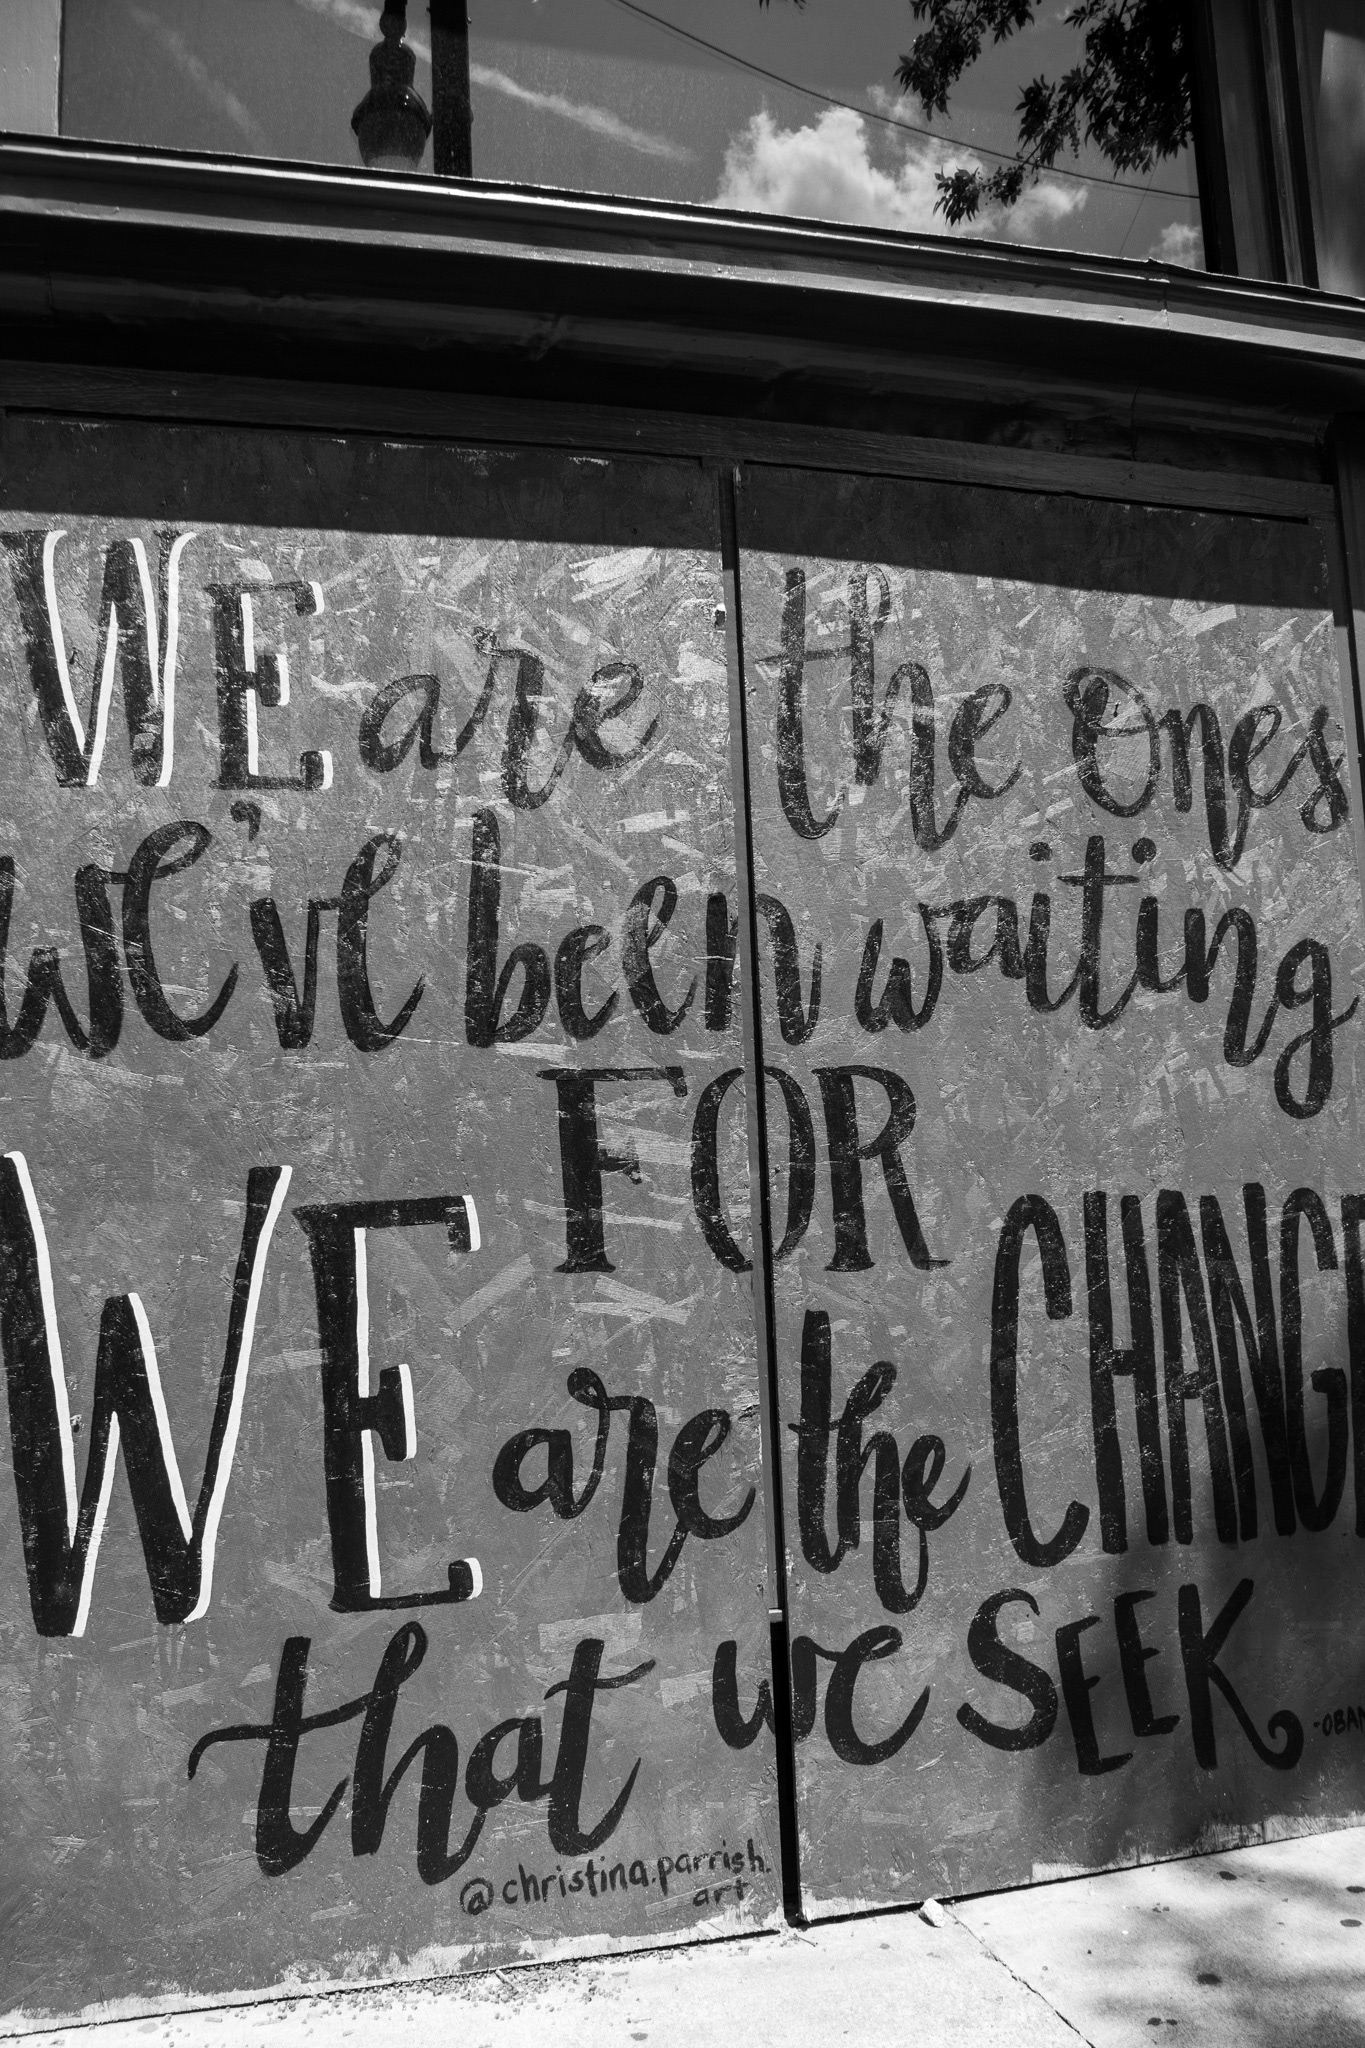 WE are the ones
we've been waiting
FOR
WE are the CHANGE
that we SEEK
-OBAM
@christina.parrish.
art